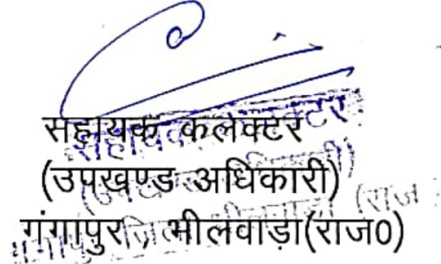 सहायक कलेक्टर
(उपखण्ड अधिकारी)
गंगापुर, भीलवाड़ा(राज0)